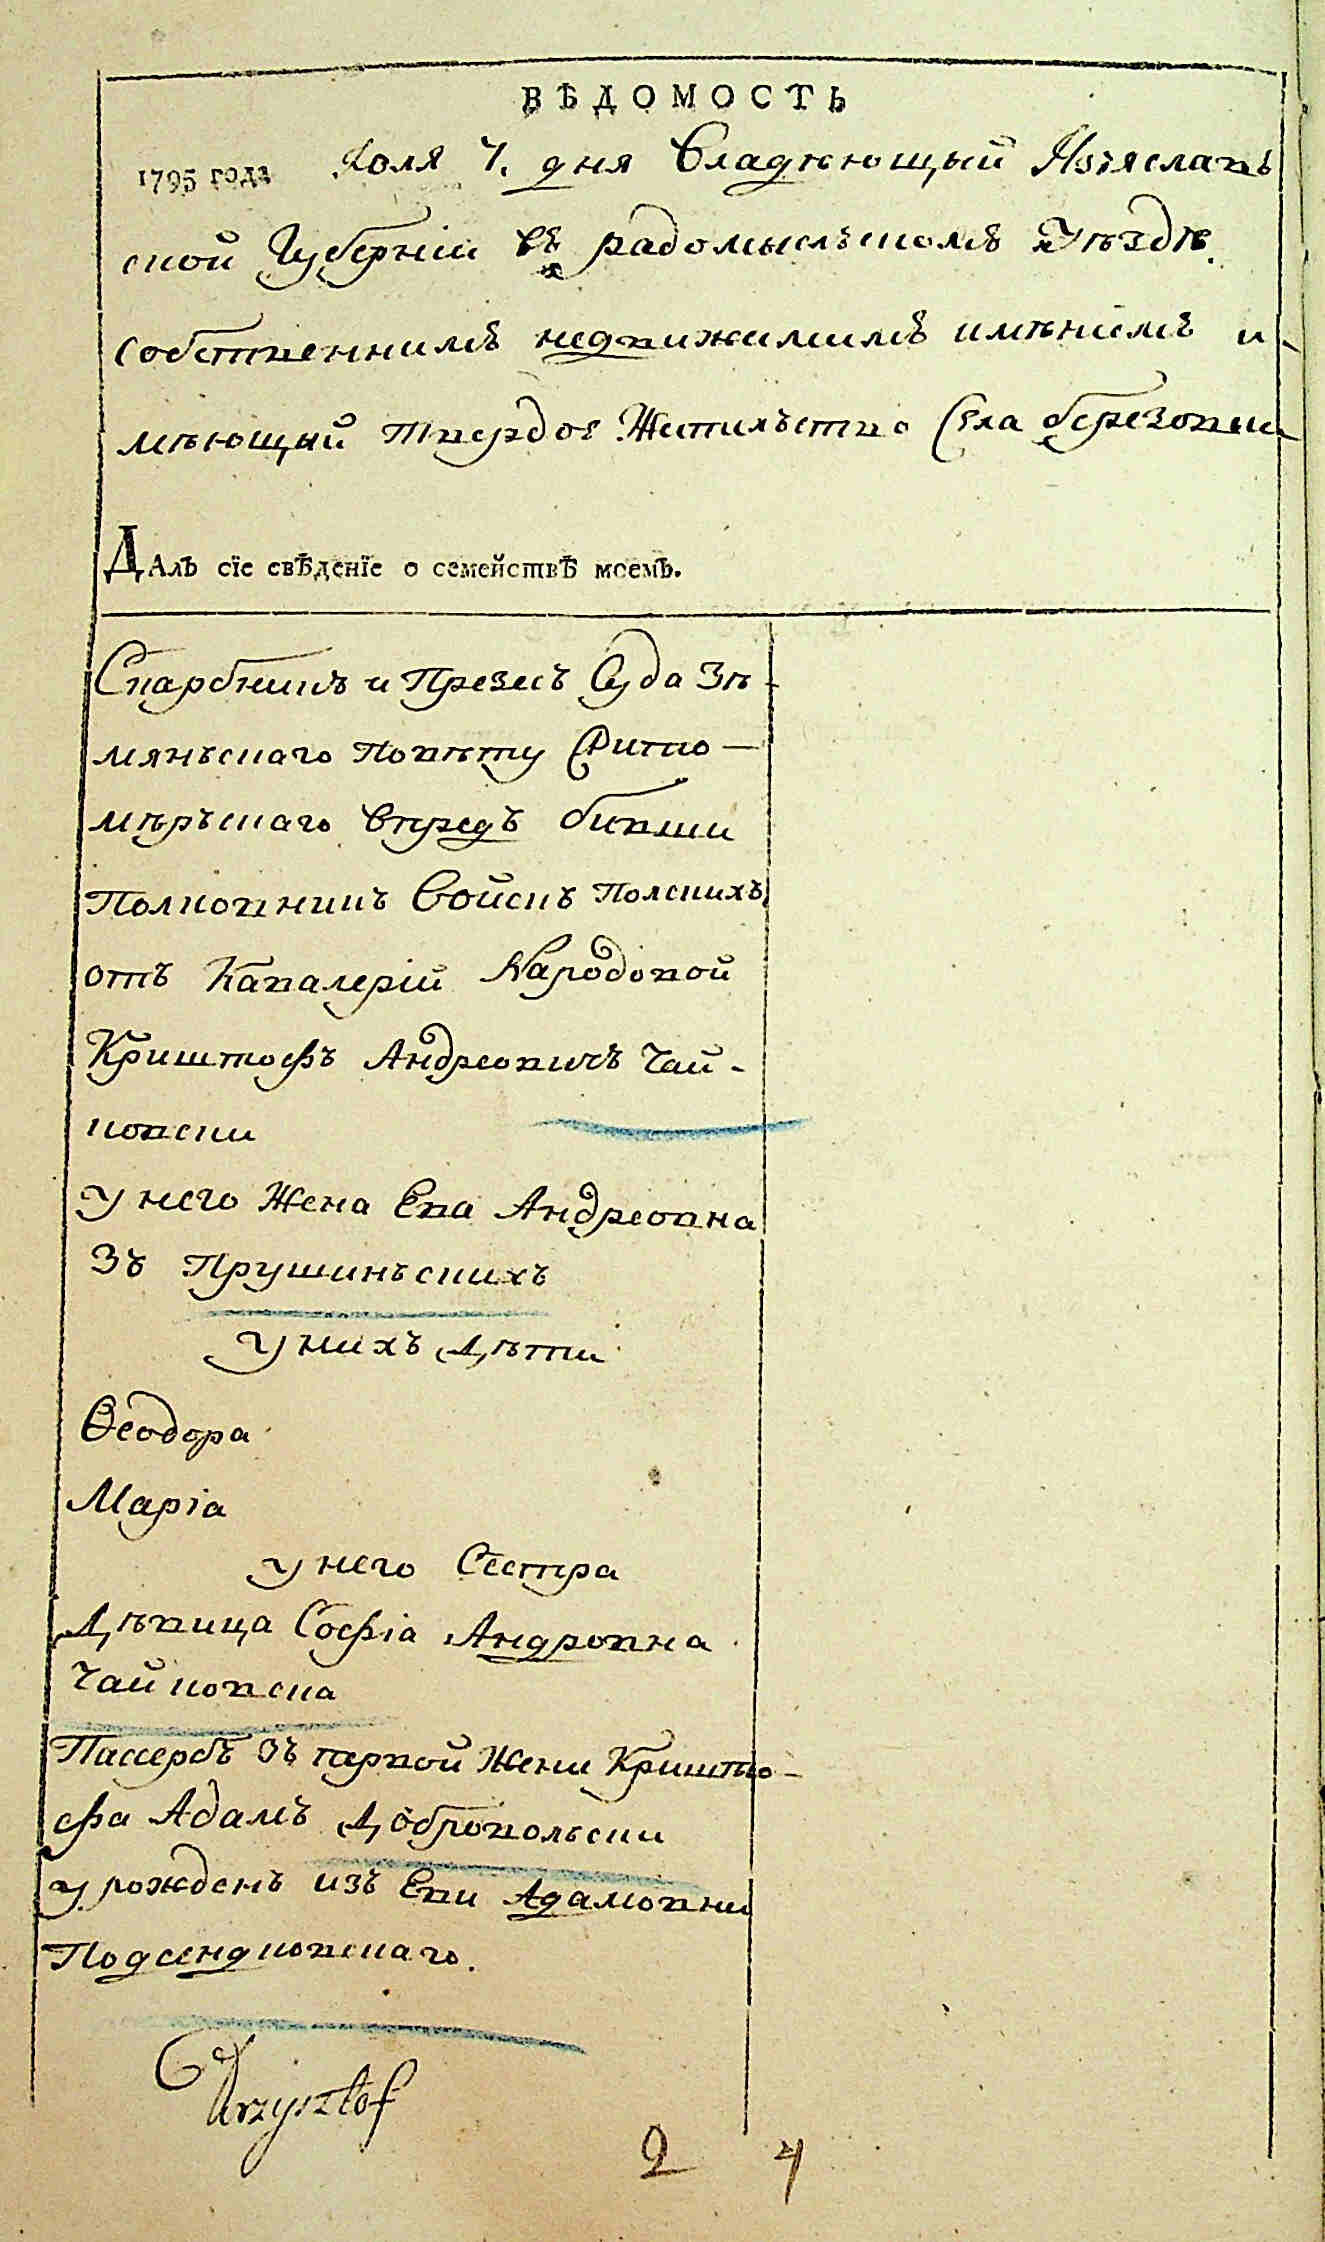 ВѢДОМОСТЬ
1795 года Июля 7. дня Владѣющый Изяслав
ской Губерніи въ радомысльскомъ Уѣздѣ.
собственнимъ недвижимимъ имѣніемъ и-
мѣющый твердое Жителъство Села березовки
Далъ сїе свѣденїе о семействѣ моемъ.
Скарбникъ и Презесъ Суда Зѣ-
мянъскаго Повѣту Житио-
мѣръскаго впредъ бивши
Полковникъ Войскъ Полскихъ
отъ Кавалеріи Народовой
Криштофъ Андреовичъ Чай-
ковски
у него Жена Ева Андреовна
Зъ Прушинъскихъ
у нихъ дѣти
Ѳеодора
Маріа
у него Сестра
Дѣвица Софіа Андровна
Чайковска
Пассербъ зъ первой Жени Кришто-
фа Адамъ Добровольски
урожденъ изъ Еви Адамовни
Подсендковскаго.
Krzysztof
2 4